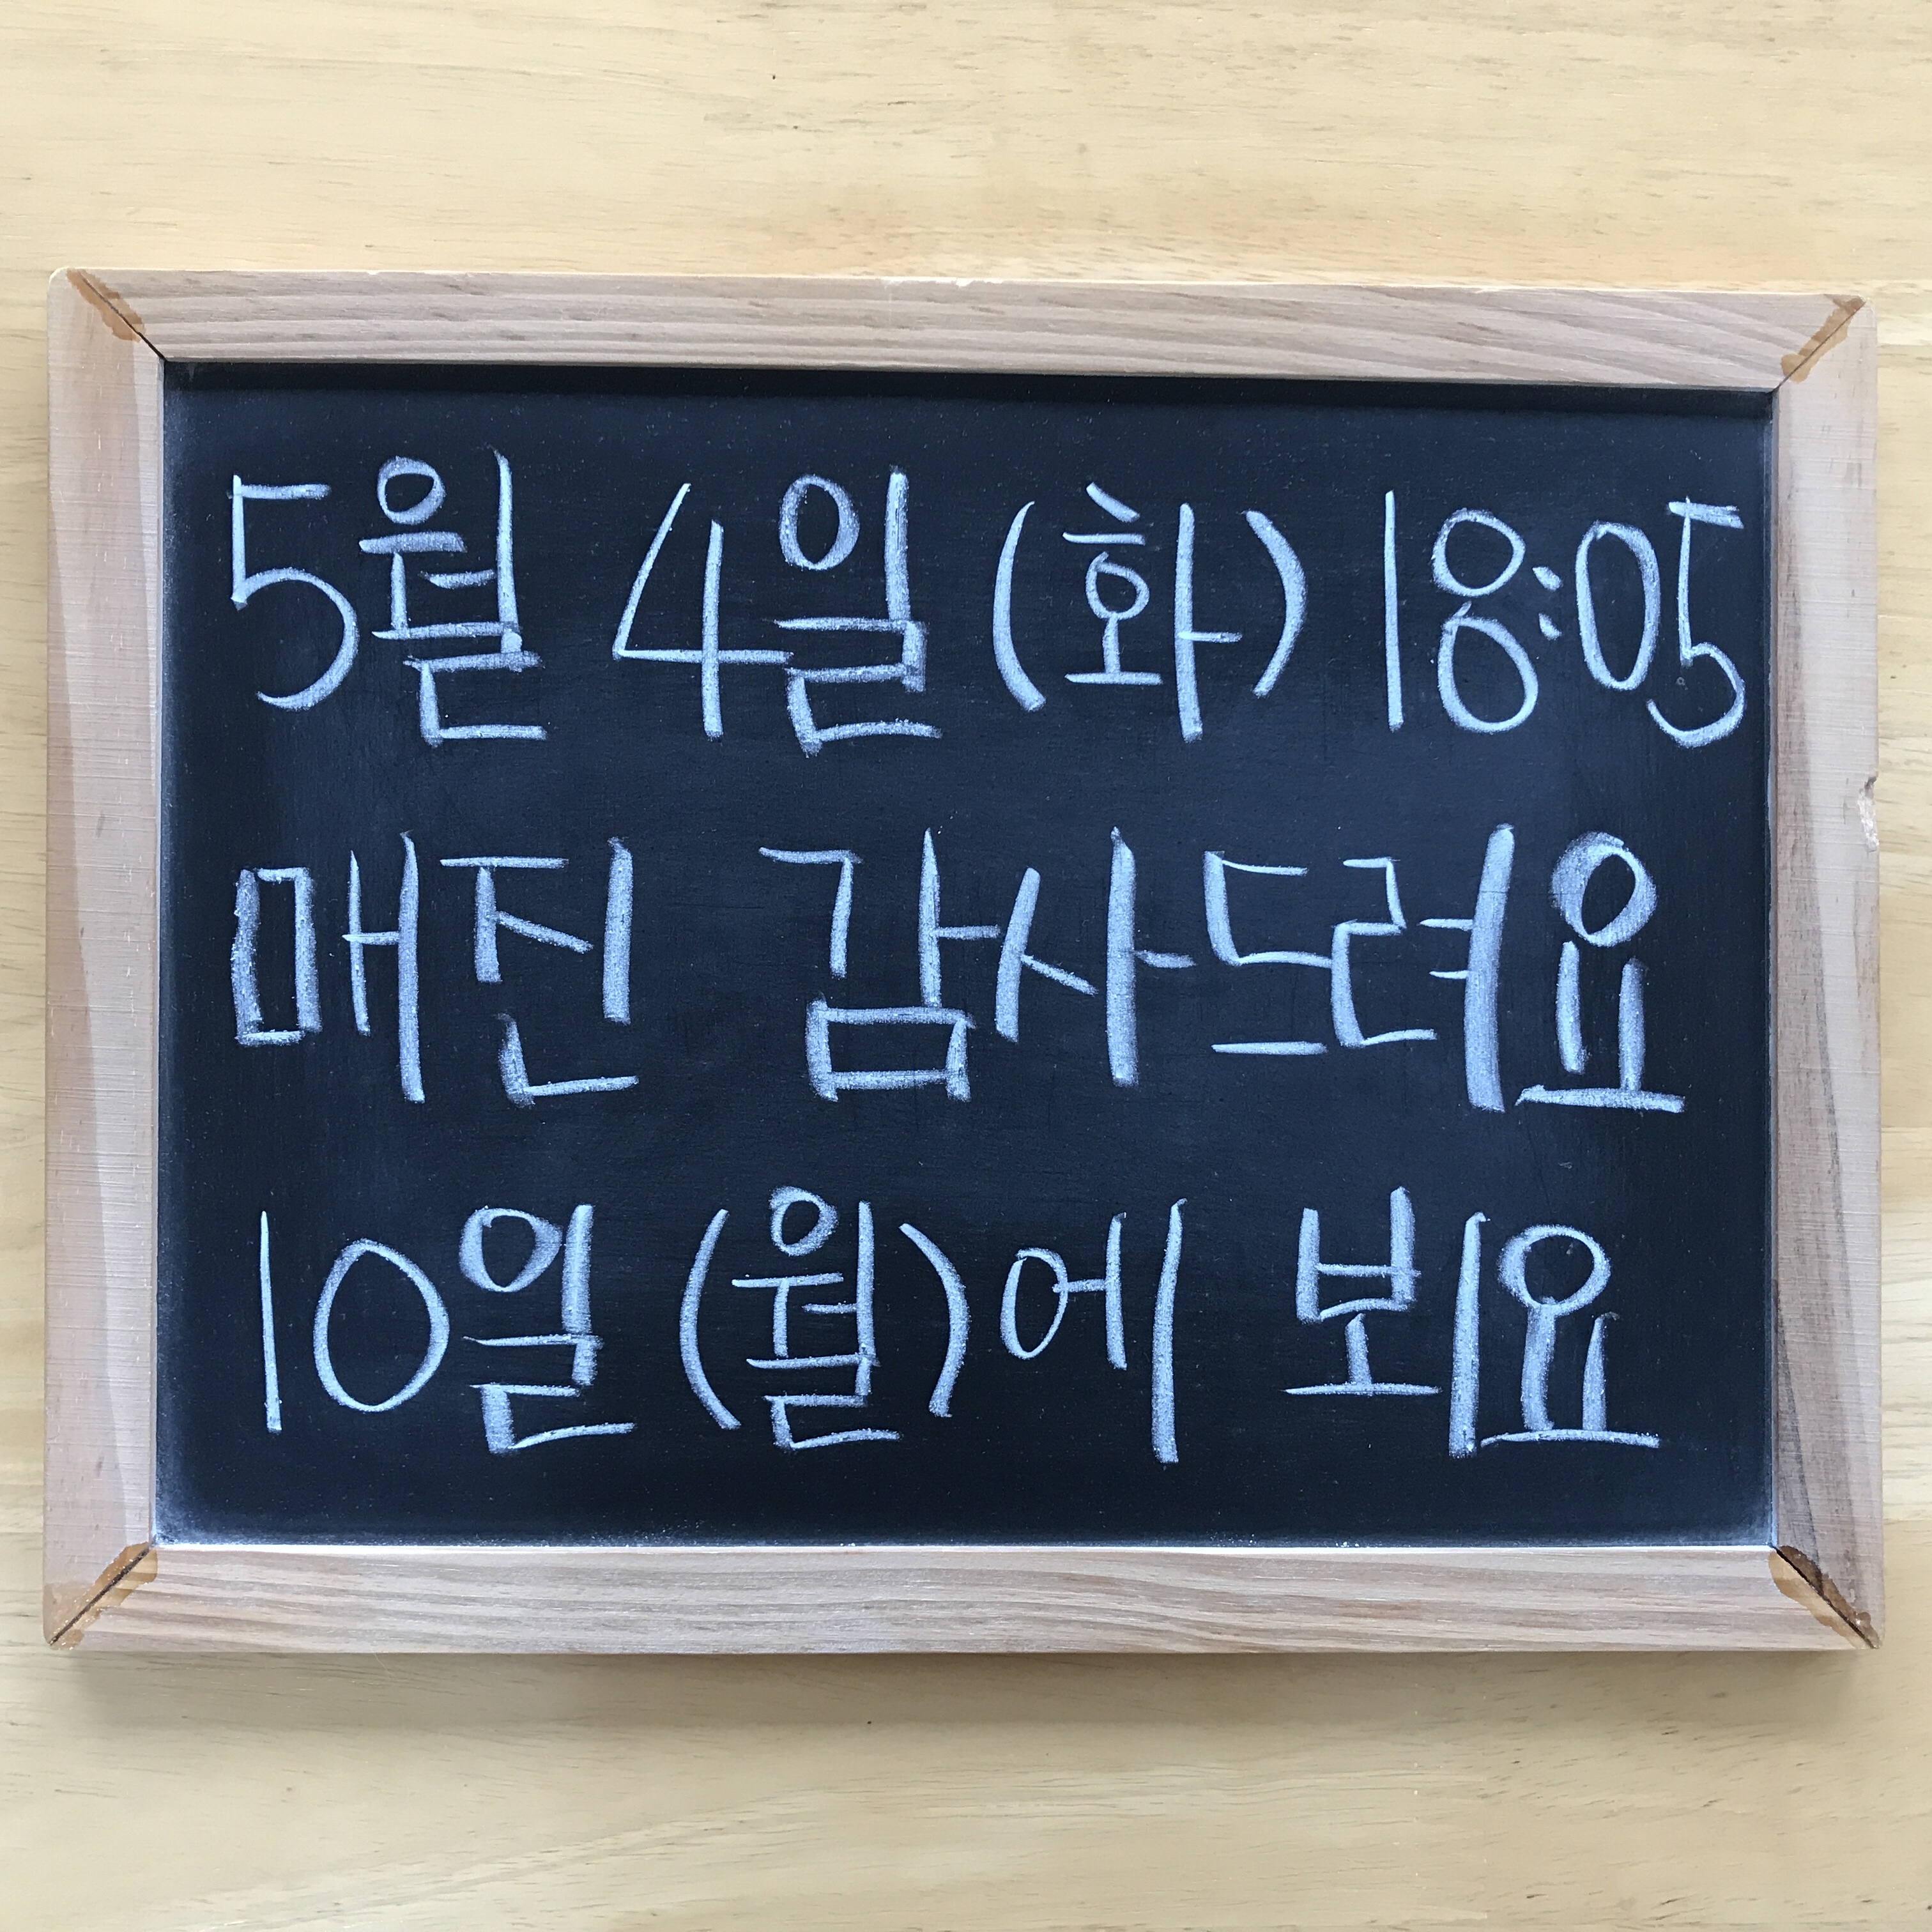 5월 4일 (화) 18:05
매진 감사드려요
10일 (월)에 뵈요